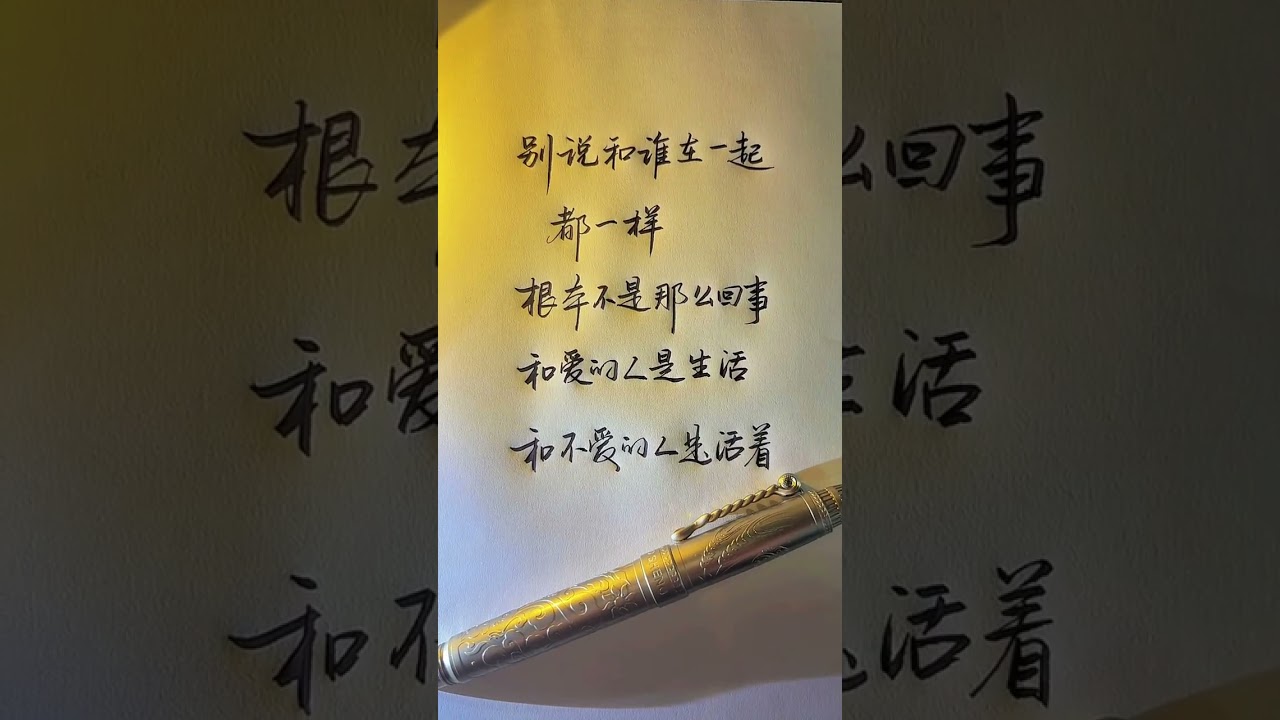 别说和谁在一起
都一样
根本不是那么回事
和爱的人是生活
和不爱的人是活着